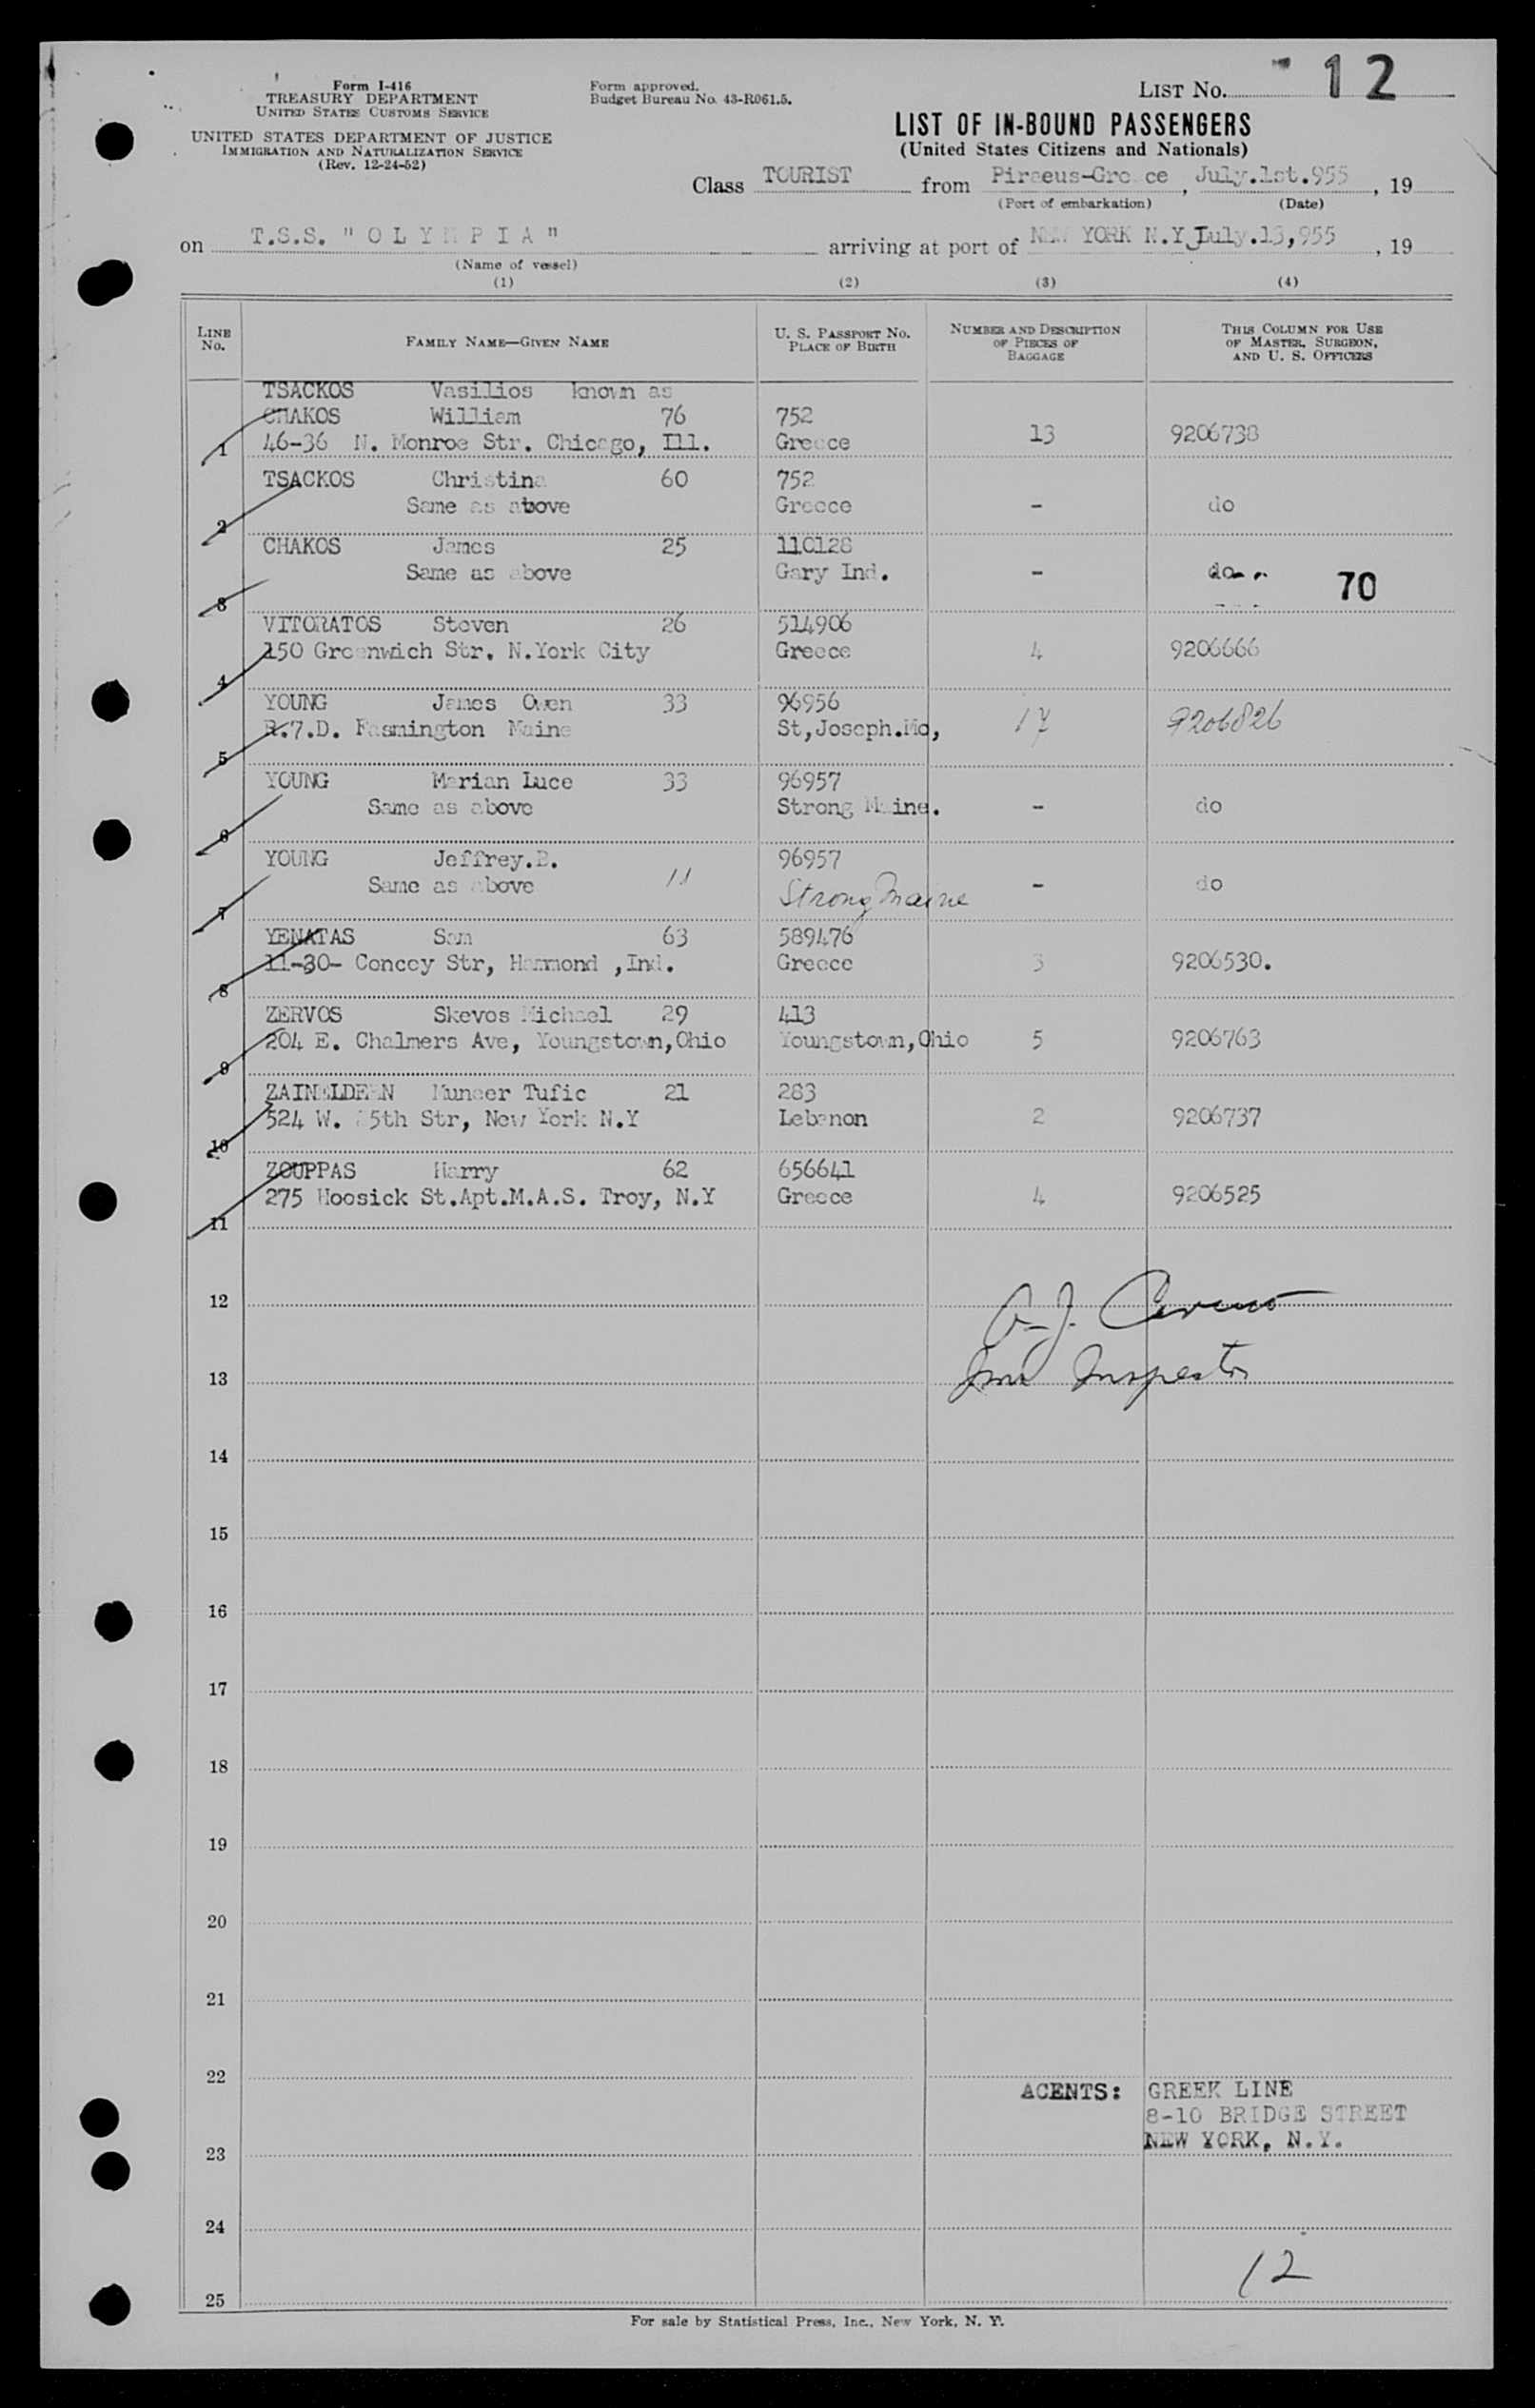 Form I-416
TREASURY DEPARTMENT
UNITED STATES CUSTOMS SERVICE
UNITED STATES DEPARTMENT OF JUSTICE
IMMIGRATION AND NATURALIZATION SERVICE
(Rev. 12-24-52)
Form approved.
Budget Bureau No. 43-R061.5.
LIST No. 12
LIST OF IN-BOUND PASSENGERS
(United States Citizens and Nationals)
Class TOURIST from Piraeus-Greece, July.1st.955, 19
(Port of embarkation) (Date)
on T.S.S. "OLYMPIA" arriving at port of NEW YORK N.Y July.13,955, 19
(Name of vessel)
(1) (2) (3) (4)
LINE No. FAMILY NAME—GIVEN NAME U. S. PASSPORT No. PLACE OF BIRTH NUMBER AND DESCRIPTION OF PIECES OF BAGGAGE THIS COLUMN FOR USE OF MASTER, SURGEON, AND U. S. OFFICERS
TSACKOS Vasilios known as
CHAKOS William 76 752
1 46-36 N. Monroe Str. Chicago, Ill. Greece 13 9206738
TSACKOS Christina 60 752
2 Same as above Greece - do
CHAKOS James 25 110128
Same as above Gary Ind. - do
3 70
VITORATOS Steven 26 514906
150 Greenwich Str. N.York City Greece 4 9206666
4
YOUNG James Owen 33 96956
R.7.D. Fasmington Maine St,Joseph.Mo, 17 9206826
5
YOUNG Marian Luce 33 96957
Same as above Strong Maine. - do
6
YOUNG Jeffrey. 11 96957
Same as above Strong Maine - do
7
YENATAS Sam 63 589476
11-30- Concey Str, Hammond ,Ind. Greece 3 9206530.
8
ZERVOS Skevos Michael 29 413
204 E. Chalmers Ave, Youngstown,Ohio Youngstown,Ohio 5 9206763
9
ZAINELDEEN Muneer Tufic 21 283
524 W. 5th Str, New York N.Y Lebanon 2 9206737
10
ZOUPPAS Harry 62 656641
275 Hoosick St.Apt.M.A.S. Troy, N.Y Greece 4 9206525
11
12 A. J.
13 Imm Inspector
14
15
16
17
18
19
20
21
22
AGENTS: GREEK LINE
8-10 BRIDGE STREET
NEW YORK, N.Y.
23
24
12
25
For sale by Statistical Press, Inc., New York, N. Y.